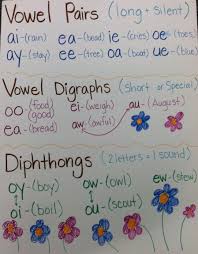 Vowel Pairs (long + silent)
ai-(rain) ea-(bead) ie-(cries) oe-(toes)
ay-(stay) ee-(tree) oa-(boat) ue-(blue)
Vowel Digraphs (short or special)
oo-(food) (good) ei-(weigh) au-(August)
ea-(bread) aw-(awful)
Diphthongs (2 letters = 1 sound)
oy-(boy) ow-(owl) ew-(stew)
oi-(boil) ou-(scout)